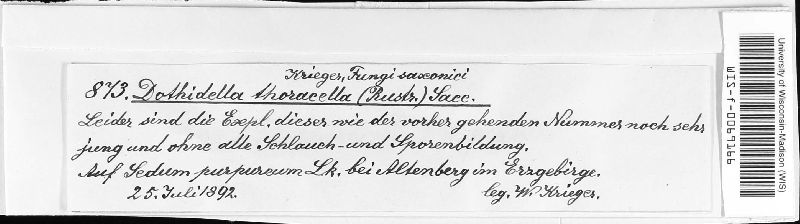 Krieger, Fungi saxonici
873. Dothidella thoracella (Rustr.) Sacc.
Leider sind die Expl. dieser wie der vorher gehenden Nummer noch sehr
jung und ohne alle Schlauch- und Sporenbildung.
Auf Sedum purpureum Lk. bei Altenberg im Erzgebirge.
25. Juli 1892. leg. W. Krieger.
University of Wisconsin-Madison (WIS)
WIS-f-0069166